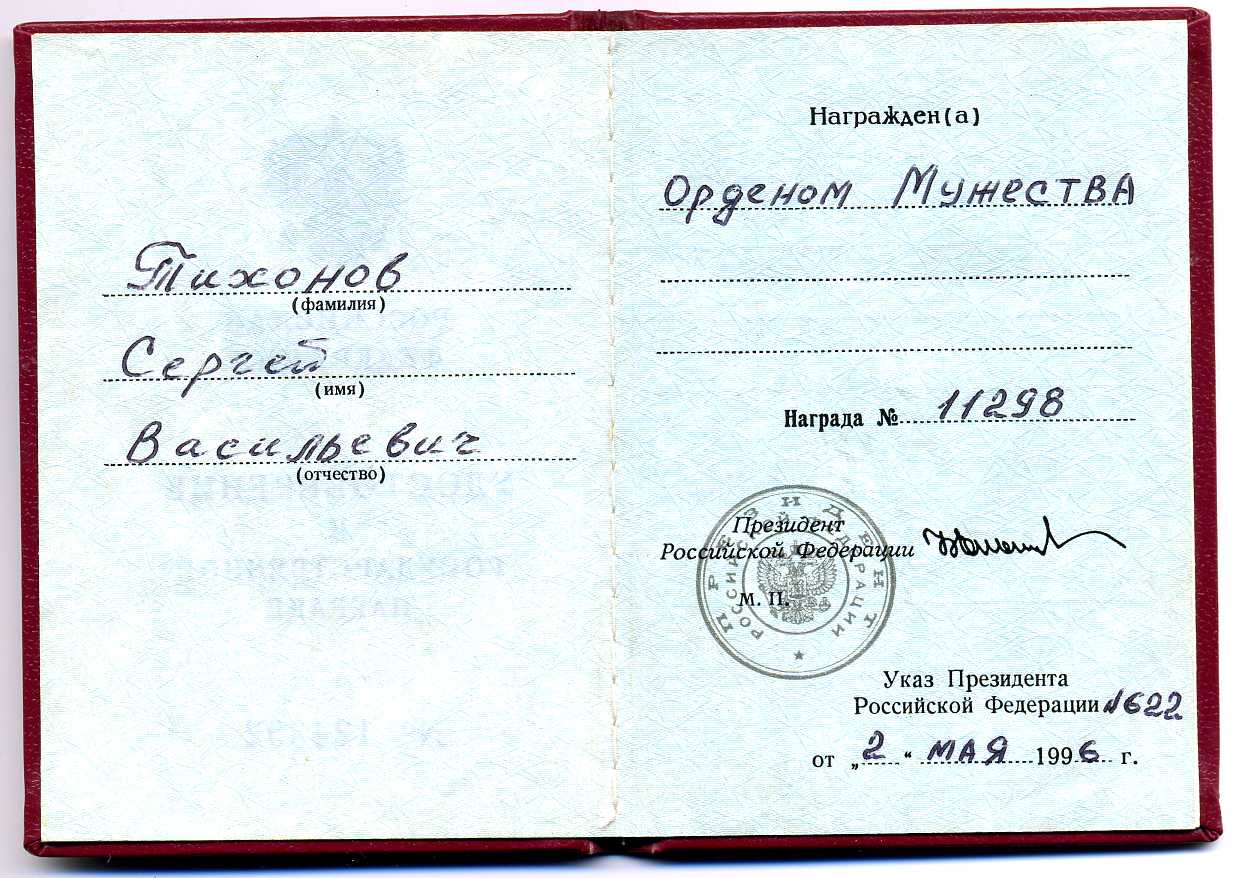 Тихонов
(фамилия)
Сергей
(имя)
Васильевич
(отчество)
Награжден(а)
Орденом Мужества
Награда № 11298
ПРЕЗИДЕНТ
РОССИЙСКОЙ ФЕДЕРАЦИИ
Президент
Российской Федерации
М. П.
Указ Президента
Российской Федерации №622
от „2“ мая 1996 г.